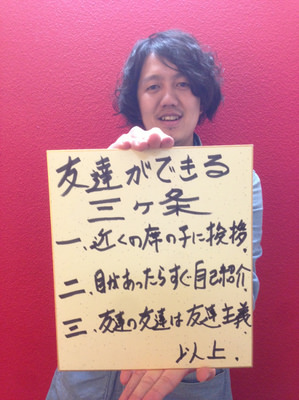 友達ができる
三ヶ条
一、近くの席の子に挨拶。
二、目があったらすぐ自己紹介
三、友達の友達は友達主義
以上。